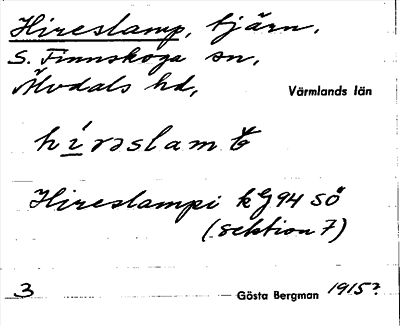 Hireslamp, tjärn.
S. Finnskoga sn,
Älvdals hd,
Värmlands län
hírəslamt
Hireslampi kG94 SÖ
(sektion 7)
3
Gösta Bergman 1915?